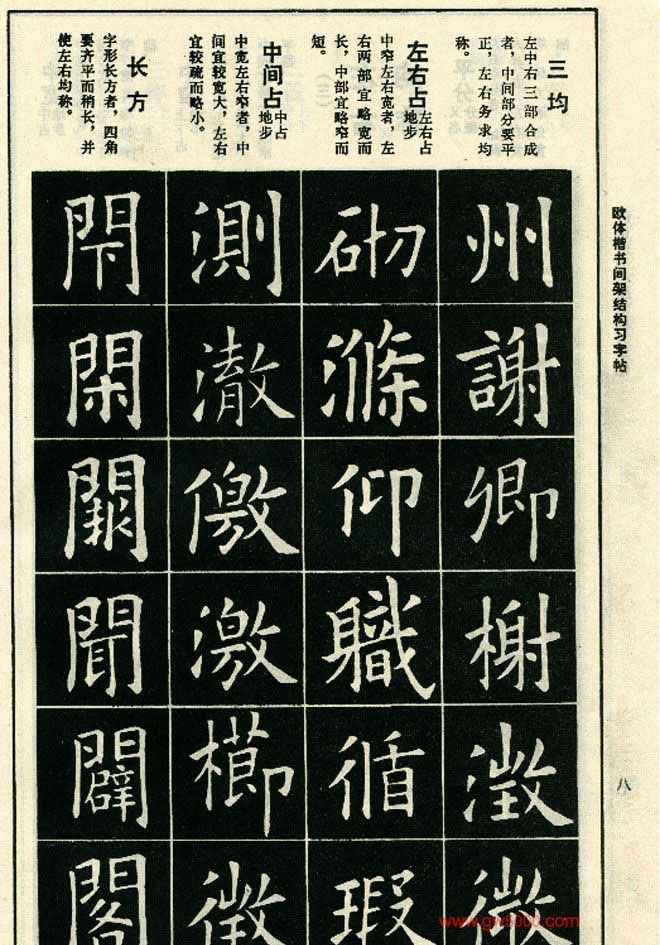 欧体楷书间架结构习字帖
八
三均
左中右三部合成
者，中间部分要平
正，左右务求均
称。
左右占
左右占
地步
中窄左右宽者，左
右两部宜略宽而
长，中部宜略窄而
短。
中间占
中占
地步
中宽左右窄者，中
间宜较宽大，左右
宜较疏而略小。
长方
字形长方者，四角
要齐平而稍长，并
使左右均称。
州謝卿榭澂微
砌滌仰軄循瑕
測澈儌激櫛徵
閇閑聞闢閣